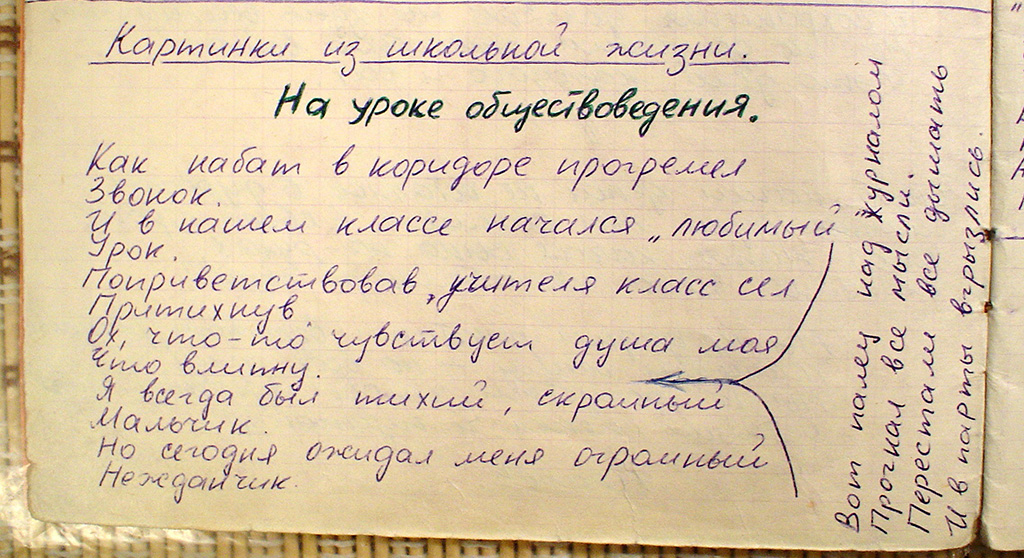 Картинки из школьной жизни.
На уроке обществоведения.
Как набат в коридоре прогремел
Звонок.
И в нашем классе начался „любимый
Урок.
Поприветствовав учителя класс сел
Притихнув
Ох, что-то чувствует душа моя
Что влипну.
Я всегда был тихий, скромный
Мальчик.
Но сегодня ожидал меня огромный
Нежданчик.
Вот палец над журналом
Прогнал все мысли.
Перестали все дышать
И в парты вгрызлись.